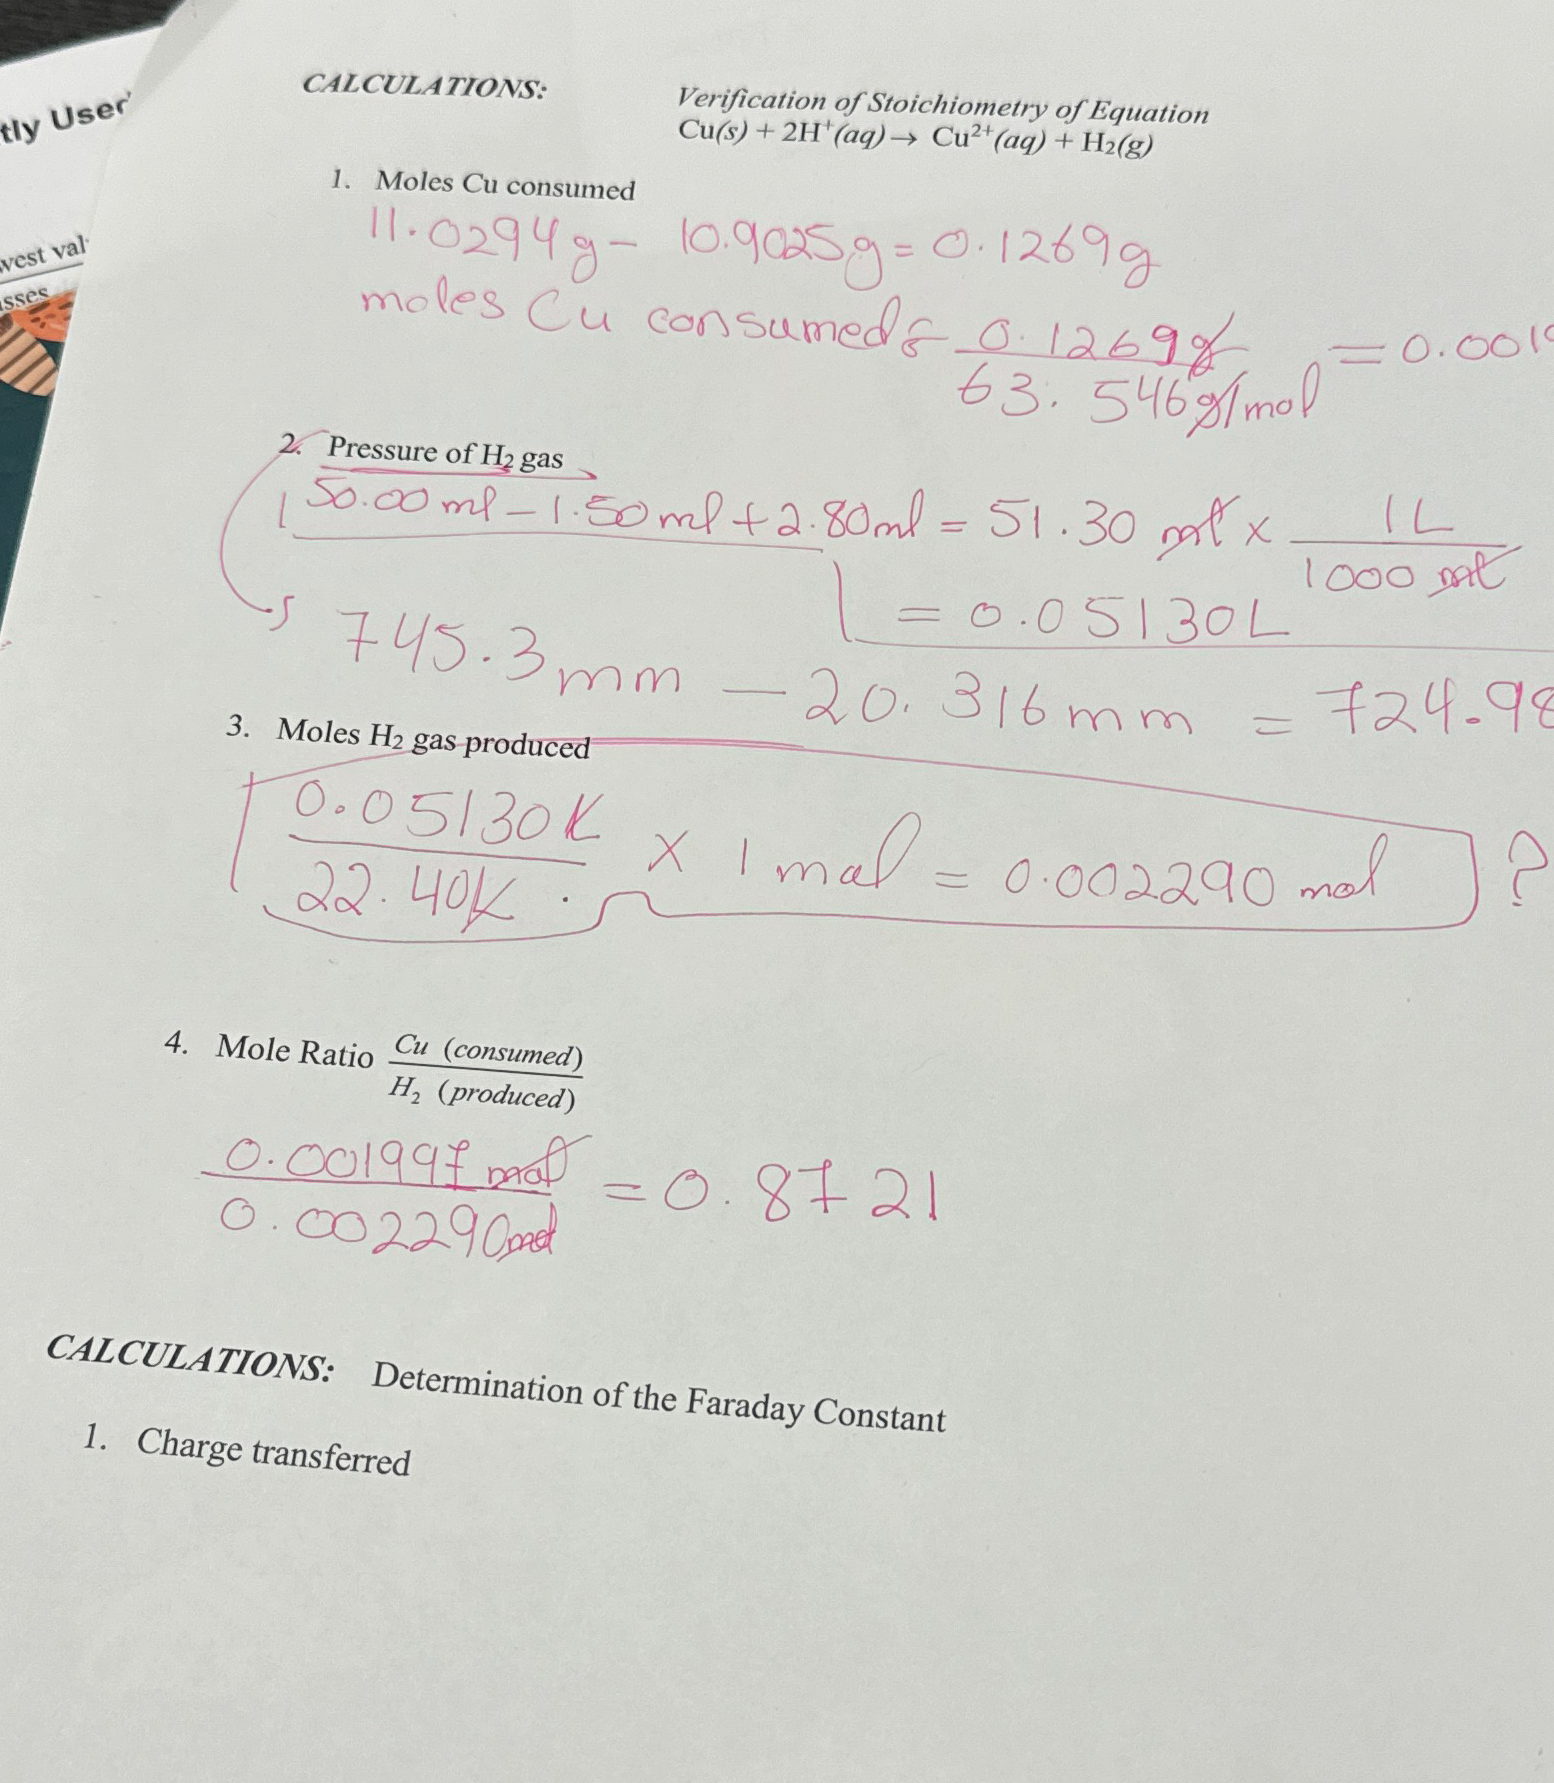 tly User
west val
sses
CALCULATIONS:
Verification of Stoichiometry of Equation
Cu(s) + 2H⁺(aq) → Cu²⁺(aq) + H₂(g)
1. Moles Cu consumed
11.0294g - 10.9025g = 0.1269g
moles Cu consumed: 0.1269g / 63.546g/mol = 0.001
2. Pressure of H₂ gas
50.00ml - 1.50ml + 2.80ml = 51.30 ml x 1L / 1000 ml
= 0.05130L
745.3mm - 20.316mm = 724.98
3. Moles H₂ gas produced
0.05130L / 22.40L x 1 mol = 0.002290 mol ?
4. Mole Ratio Cu (consumed) / H₂ (produced)
0.001997 mol / 0.002290mol = 0.8721
CALCULATIONS: Determination of the Faraday Constant
1. Charge transferred